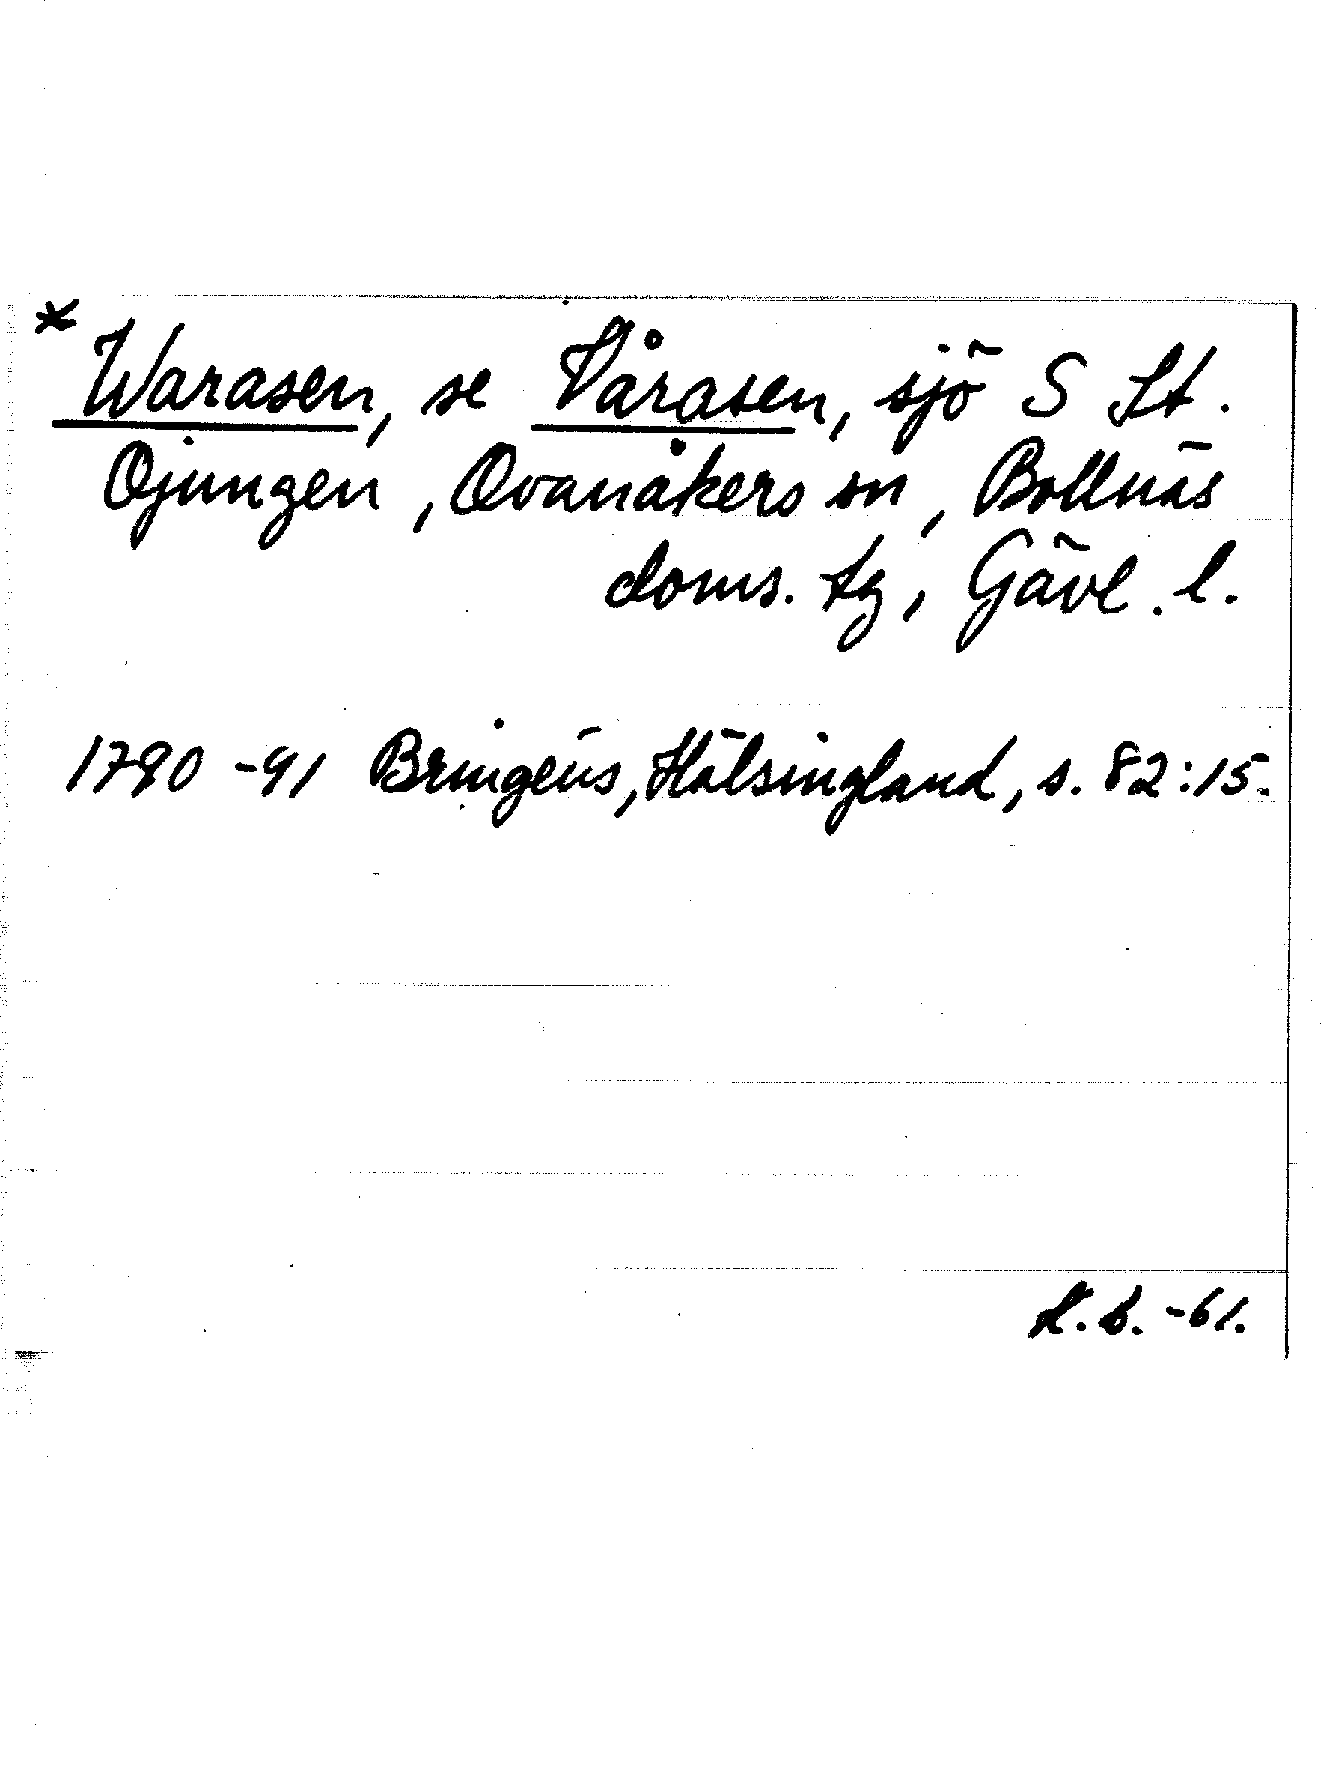 * Warasen, se Vårasen, sjö S St.
Öjungen, Ovanåkers sn, Bollnäs
doms. tg, Gävl. l.
1790-91 Bringéus, Hälsingland, s. 82:15.
-61.